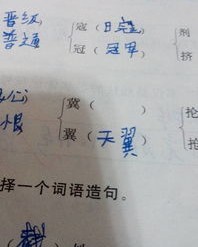 晋级
普通
寇（日寇）
冠（冠军）
剂
挤
恨
冀（ ）
翼（天翼）
抢
择一个词语造句。